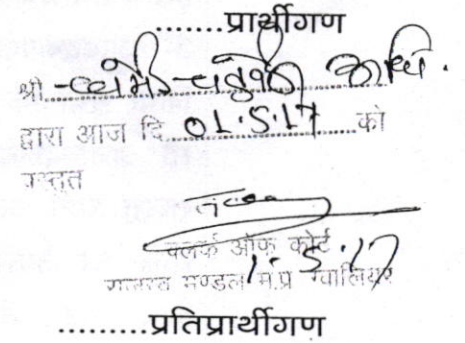 .......प्रार्थीगण
श्री धर्मेन्द्र चतुर्वेदी अभि.
द्वारा आज दि 01.5.17 को
प्रस्तुत
क्लर्क ऑफ कोर्ट
1.5.17
राजस्व मण्डल म.प्र ग्वालियर
.........प्रतिप्रार्थीगण